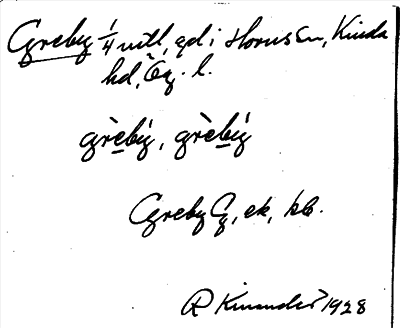 Greby 1/4 mtl, gd i Horns sn, Kinda
hd, Ög. l.
grèbý, grèbý
Greby Ög, ek, kb.
R Kinander 1928